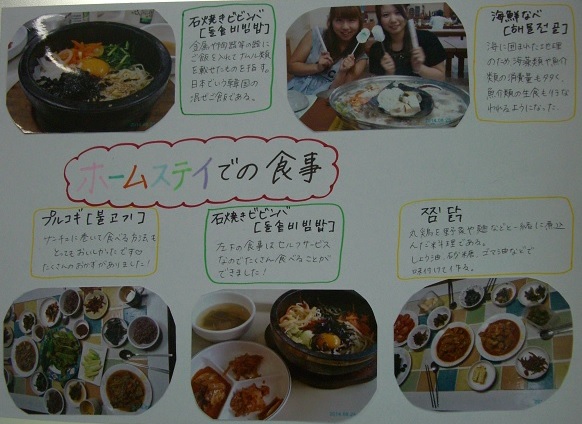 石焼きビビンバ
[돌솥비빔밥]
ご飯を入れてナムル類
を載せたものを指す。
日本でいう韓国の
混ぜご飯である。
海鮮なべ
[해물전골]
海に囲まれた地理
のため海藻類や魚介
類の消費量も多く、
魚介類の生食も行な
われるようになった。
ホームステイでの食事
プルコギ[불고기]
サンチュに巻いて食べる方法も
とてもおいしかったです。
たくさんのおかずがありました!
石焼きビビンバ
[돌솥비빔밥]
左下の食事はセルフサービス
なのでたくさん食べることが
できました!
찜닭
丸鶏を野菜や麺などと一緒に煮込
んだ料理である。
しょう油、砂糖、ゴマ油などで
味付けしてある。